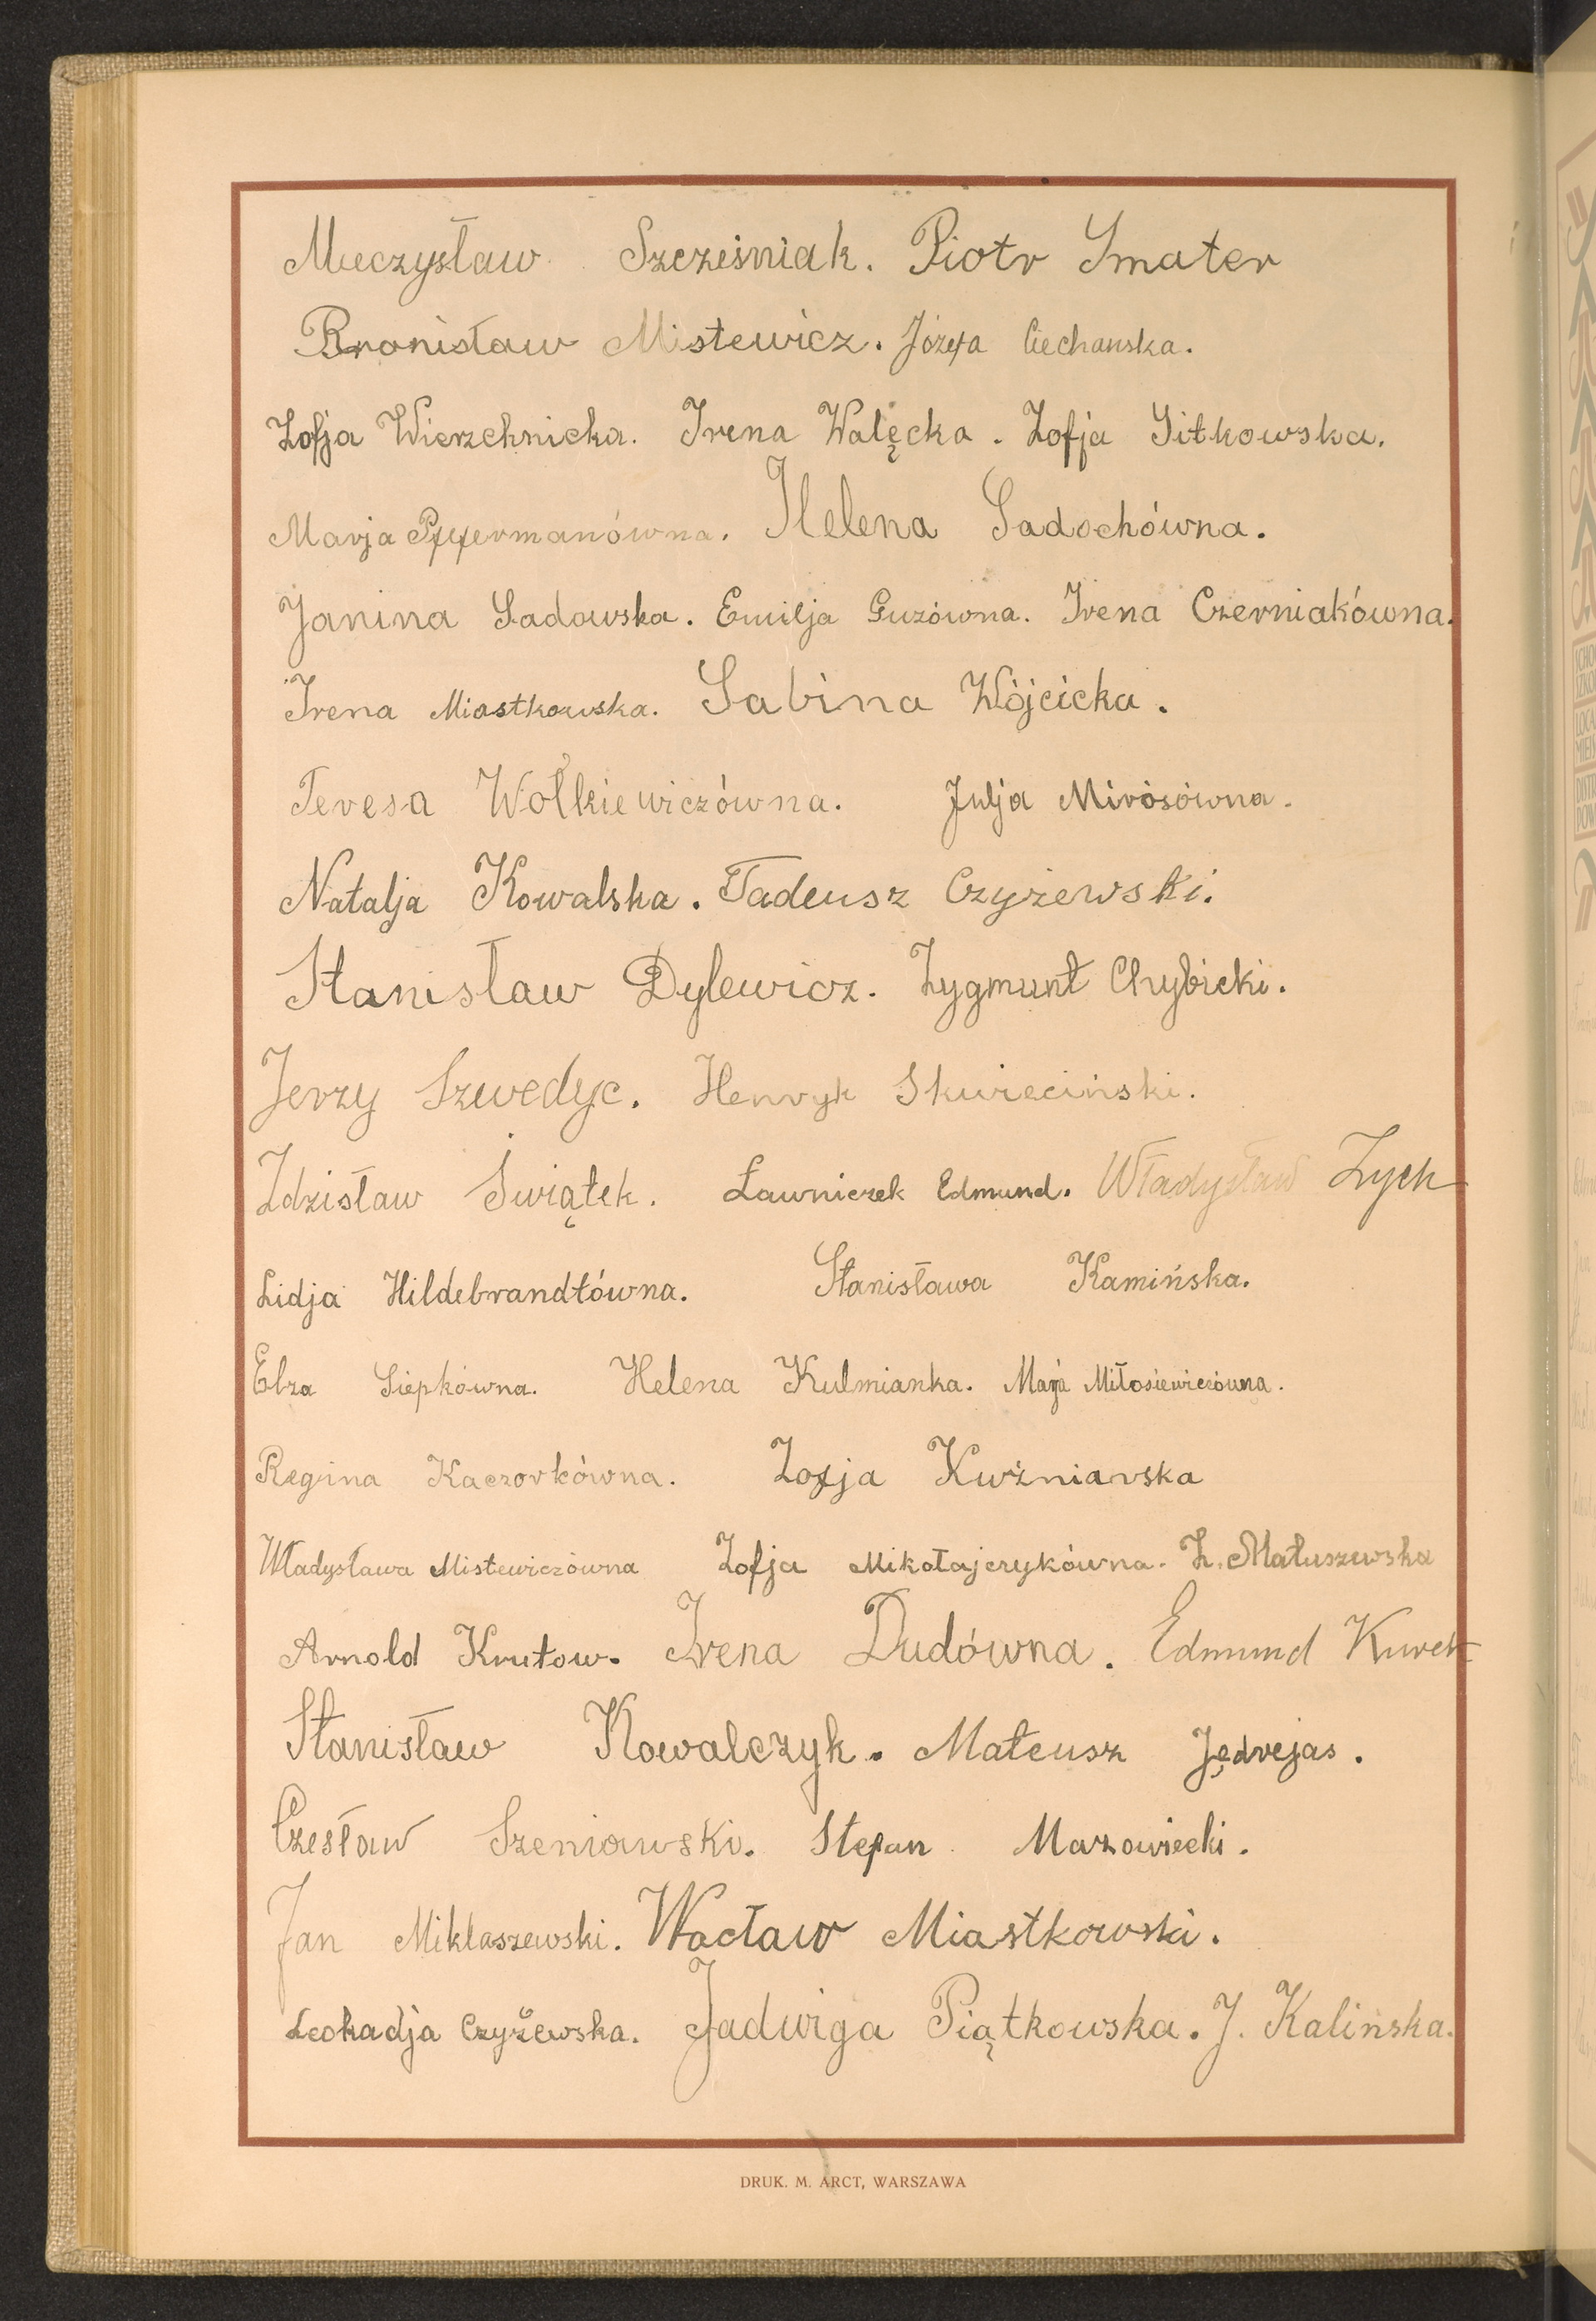 Mieczysław Szcześniak. Piotr Smater
Bronisław Mistewicz. Józefa Ciechańska.
Zofja Wierzchnicka. Irena Walęcka. Zofja Sitkowska.
Marja Pfyfermanówna. Helena Sadochówna.
Janina Sadowska. Emilja Guzówna. Irena Czerniakówna.
Irena Miastkowska. Sabina Wójcicka.
Teresa Wołkiewiczówna. Julja Mirosówna.
Natalja Kowalska. Tadeusz Czyżewski.
Stanisław Dylewicz. Zygmunt Chybicki.
Jerzy Szwedyc. Henryk Skwieciński.
Zdzisław Świątek. Ławniczek Edmund. Władysław Zych
Lidja Hildebrandtówna. Stanisława Kamińska.
Elza Siepkówna. Helena Kulmianka. Marja Miłosiewiczówna.
Regina Kaczorkówna. Zofja Kuźniarska
Władysława Mistewiczówna Zofja Mikołajczykówna. Z. Matuszewska
Arnold Krutow. Irena Dudówna. Edmund Kurek
Stanisław Kowalczyk. Mateusz Jędrejas.
Czesław Szeniawski. Stefan Mazowiecki.
Jan Miklaszewski. Wacław Miastkowski.
Leokadja Czyżewska. Jadwiga Piątkowska. J. Kalińska.
DRUK. M. ARCT, WARSZAWA